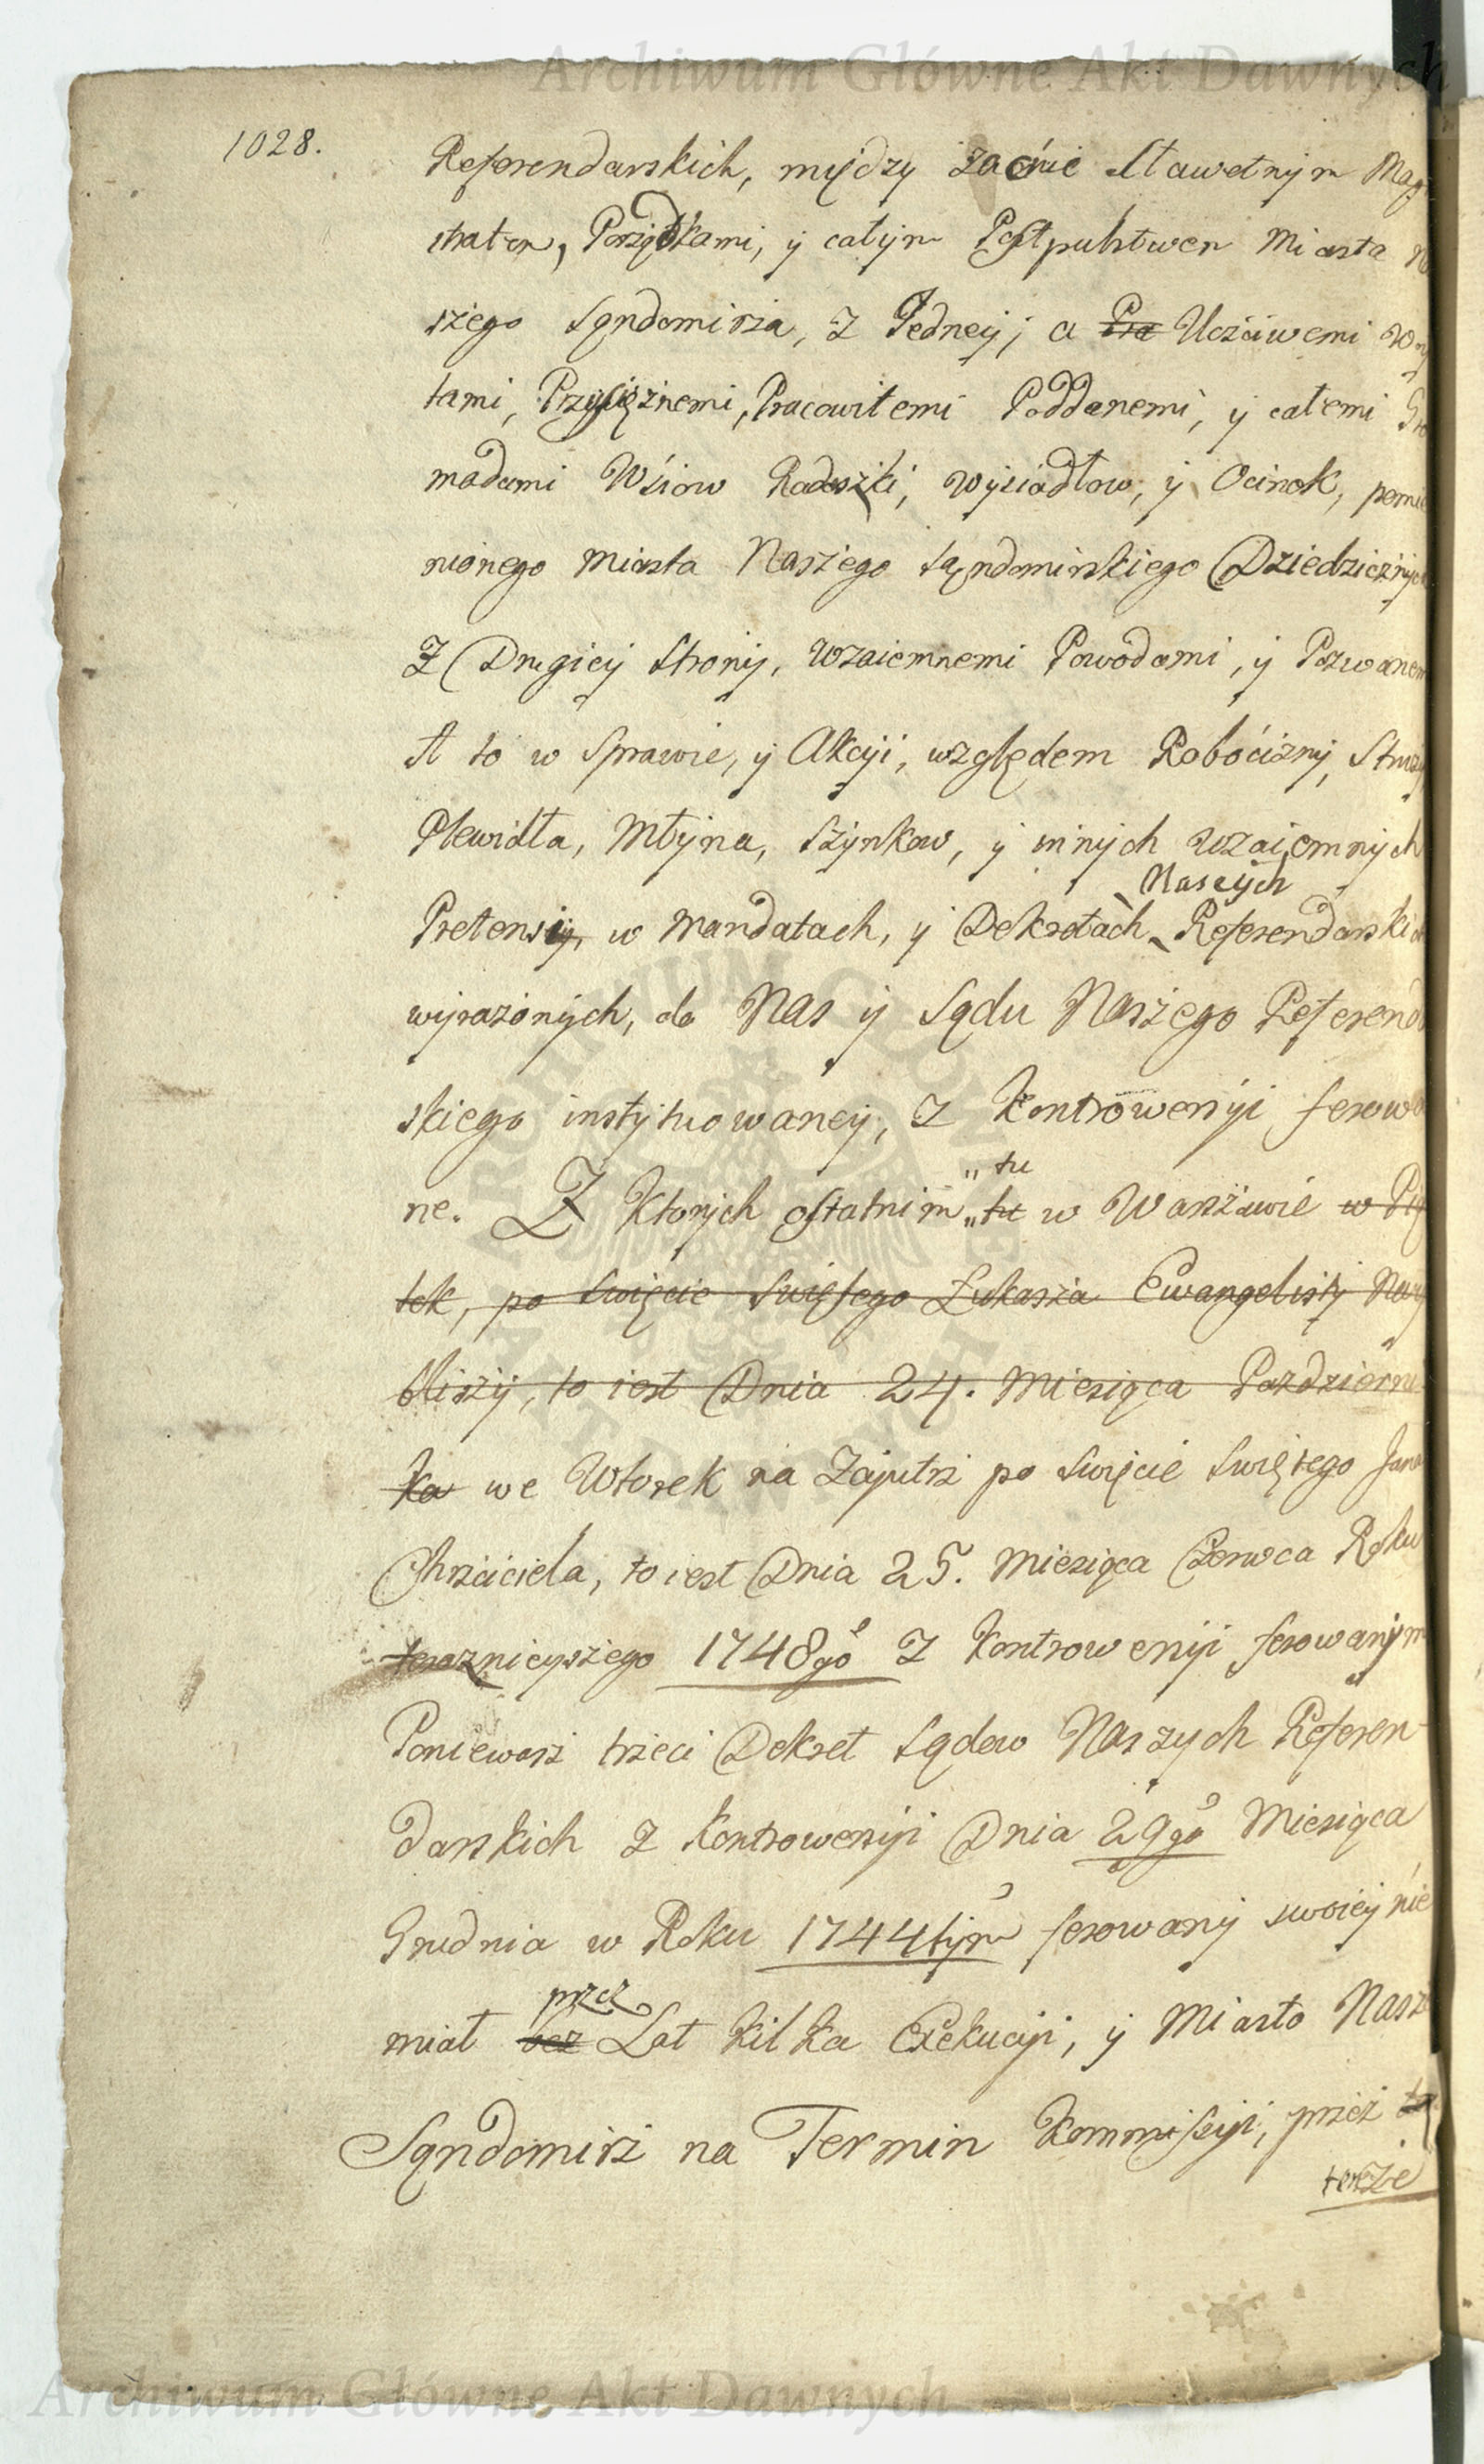 Archiwum Główne Akt Dawnych
1028.
Referendarskich, między zacnie Sławetnym Mag
stratem, Porządkami, y całym Pospulstwem Miasta
szego Sąndomirza, z Jedney; a Pra Uczciwemi Woy
tami, Przysiężnemi, Pracowitemi Poddanemi, y całemi Gro
madami Wsiow Radoszki, Wysiadłow, y Ocinek, pomie
nionego Miasta Naszego Sąndomirskiego Dziedzicznych
Z Drugiey Strony, wzaiemnemi Powodami, y Pozwanem
A to w Sprawie, y Akcyi, względem Roboćizny, Struży
Plewidła, Młyna, Szynkow, y innych wzaiemnych
Naszych
Pretensiy, w Mandatach, y Dekretach Referendarskich
wyrażonych, do Nas y Sądu Naszego Referend
skiego instytuowaney, z Kontrowersyi ferowa
ne. Z Ktorych ostatnim „tu w Warszawie w Pią
„ tu
tek, po Swięcie Swiętego Łukasza Ewangelisty Nay
bliszy, to iest Dnia 24. Miesiąca Pazdzierni
ka we Wtorek na Zajutrz po Swięcie Swiętego Jana
Chrzciciela, to iest Dnia 25. Miesiąca Czerwca Roku
teraznieyszego 1748go Z Kontrowersyi ferowanym
Poniewasz trzeci Dekret Sądow Naszych Referen-
darskich z Kontrowersyi Dnia 29go Miesiąca
Grudnia w Roku 1744tym ferowany swoiey nie
przez
miał bez Lat kilka Exekucyi, y Miasto Nasze
Sąndomirz na Termin Kommissyi, przez tę
terże
Archiwum Główne Akt Dawnych